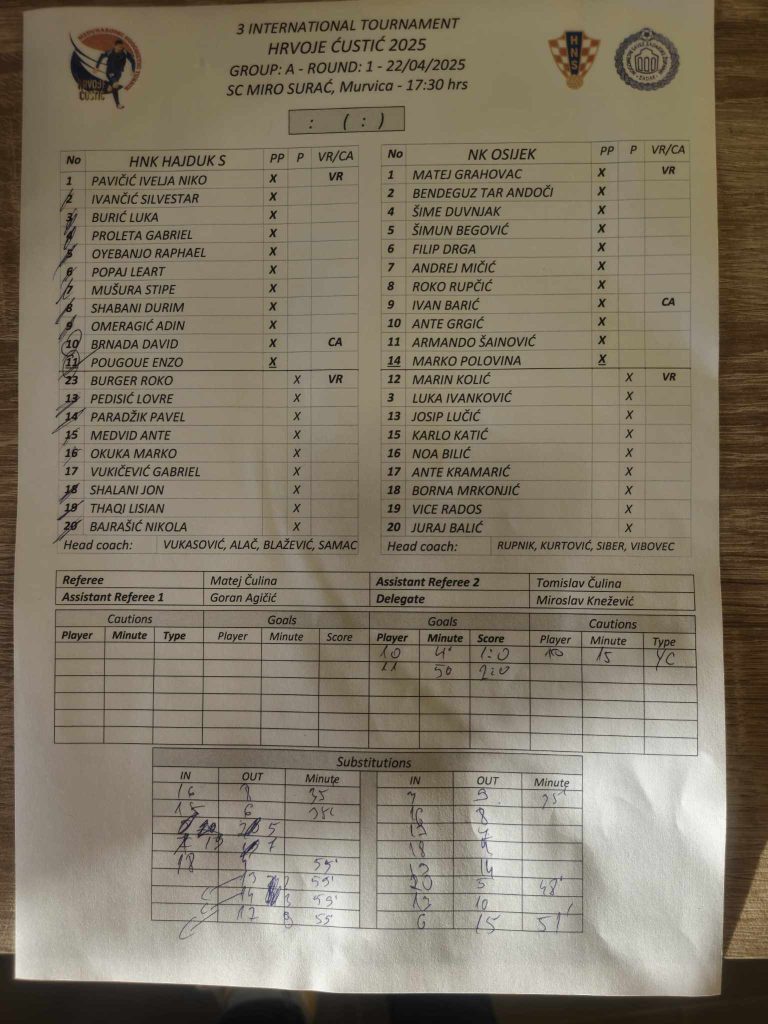 3 INTERNATIONAL TOURNAMENT
HRVOJE ĆUSTIĆ 2025
GROUP: A - ROUND: 1 - 22/04/2025
SC MIRO SURAĆ, Murvica - 17:30 hrs
: ( : )
HRVOJE ĆUSTIĆ
HNS
ZADAR
No HNK HAJDUK S PP P VR/CA
1 PAVIČIĆ IVELJA NIKO X VR
2 IVANČIĆ SILVESTAR X
3 BURIĆ LUKA X
4 PROLETA GABRIEL X
5 OYEBANJO RAPHAEL X
6 POPAJ LEART X
7 MUŠURA STIPE X
8 SHABANI DURIM X
9 OMERAGIĆ ADIN X
10 BRNADA DAVID X CA
11 POUGOUE ENZO X
23 BURGER ROKO X VR
13 PEDISIĆ LOVRE X
14 PARADŽIK PAVEL X
15 MEDVID ANTE X
16 OKUKA MARKO X
17 VUKIČEVIĆ GABRIEL X
18 SHALANI JON X
19 THAQI LISIAN X
20 BAJRAŠIĆ NIKOLA X
Head coach: VUKASOVIĆ, ALAČ, BLAŽEVIĆ, SAMAC
No NK OSIJEK PP P VR/CA
1 MATEJ GRAHOVAC X VR
2 BENDEGUZ TAR ANDOČI X
4 ŠIME DUVNJAK X
5 ŠIMUN BEGOVIĆ X
6 FILIP DRGA X
7 ANDREJ MIČIĆ X
8 ROKO RUPČIĆ X
9 IVAN BARIĆ X CA
10 ANTE GRGIĆ X
11 ARMANDO ŠAINOVIĆ X
14 MARKO POLOVINA X
12 MARIN KOLIĆ X VR
3 LUKA IVANKOVIĆ X
13 JOSIP LUČIĆ X
15 KARLO KATIĆ X
16 NOA BILIĆ X
17 ANTE KRAMARIĆ X
18 BORNA MRKONJIĆ X
19 VICE RADOS X
20 JURAJ BALIĆ X
Head coach: RUPNIK, KURTOVIĆ, SIBER, VIBOVEC
Referee Matej Čulina Assistant Referee 2 Tomislav Čulina
Assistant Referee 1 Goran Agičić Delegate Miroslav Knežević
Cautions Goals Goals Cautions
Player Minute Type Player Minute Score Player Minute Score Player Minute Type
10 4' 1:0 10 15 YC
11 50 2:0
Substitutions
IN OUT Minute IN OUT Minute
16 8 35 9
15 6 16 8
5
7
18 55' 14
13 55' 20 5 48'
14 55' 10
17 55 6 15 51'